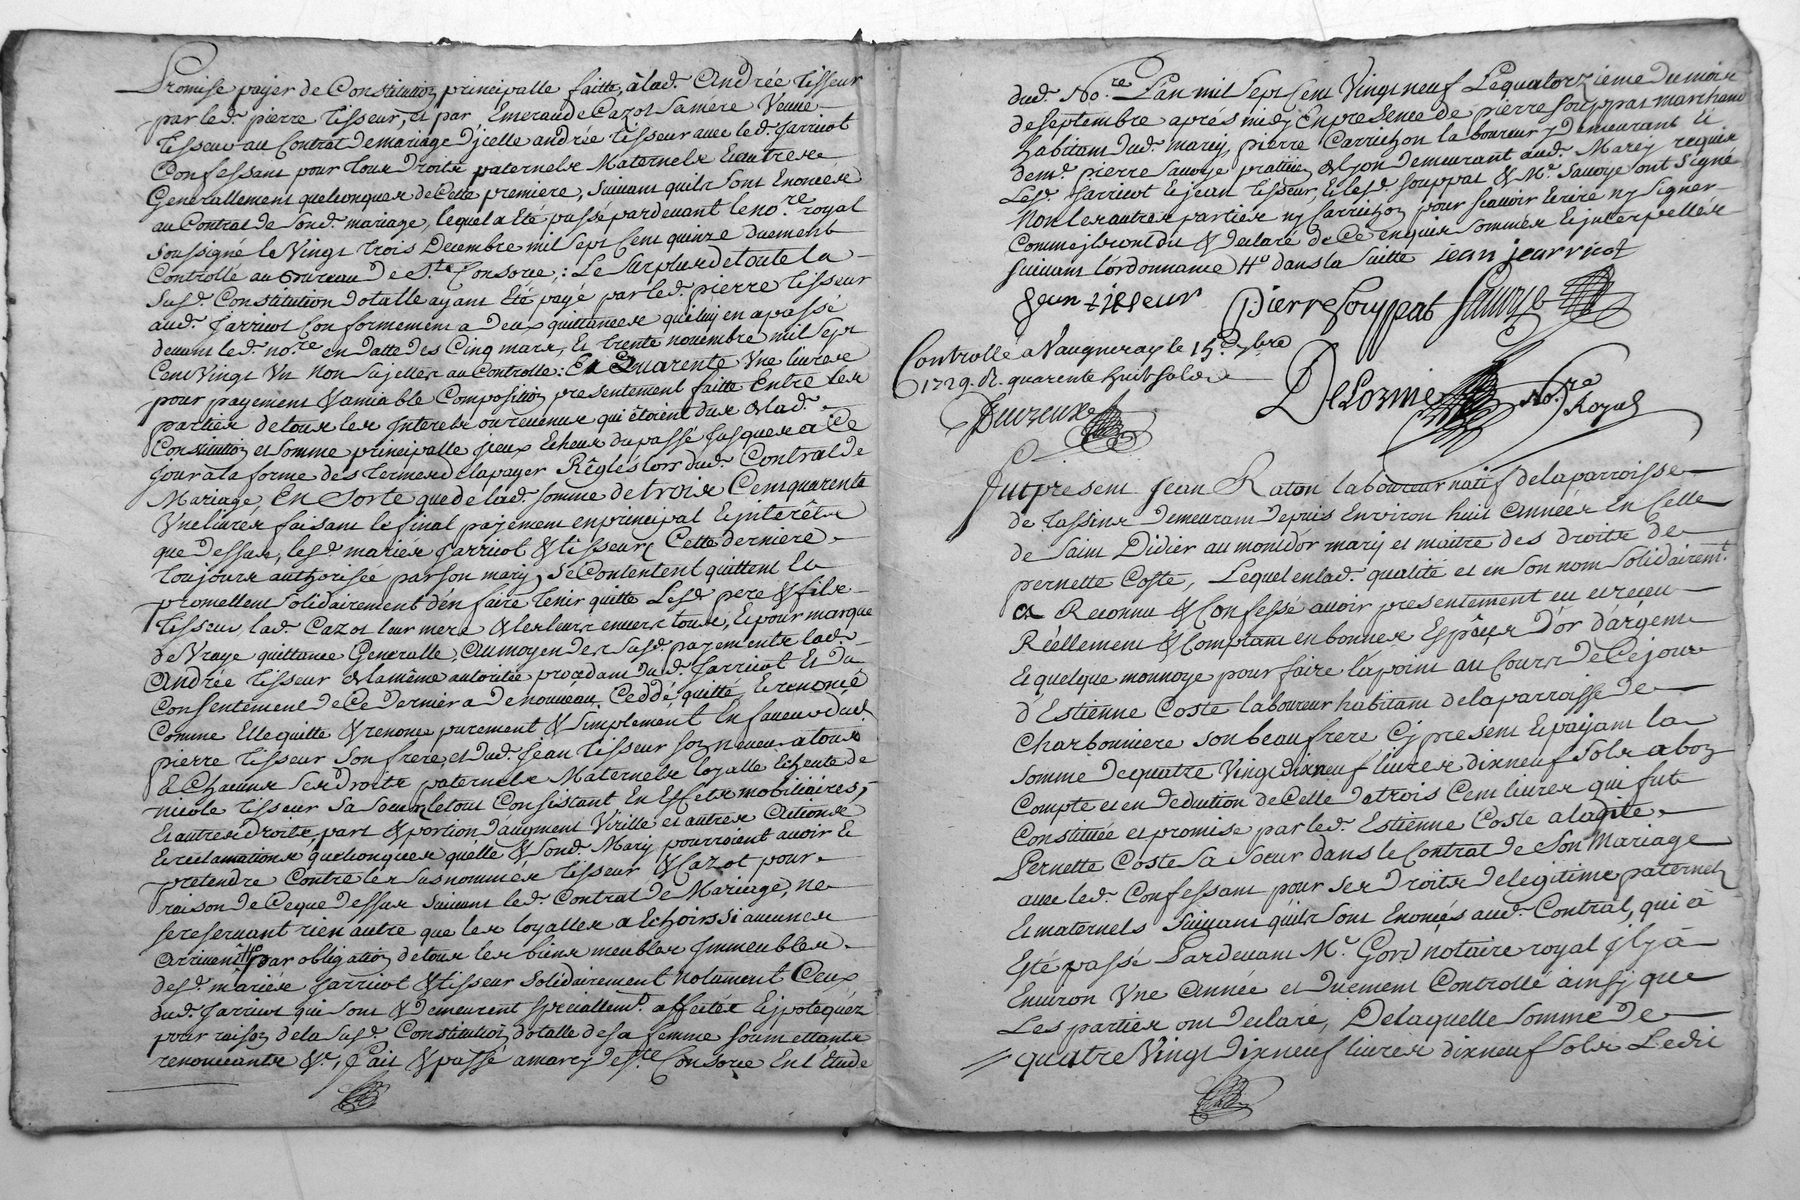 Promise payer de Constitution principalle faitte, à lad. Andrée Tisseur
par led. pierre Tisseur, et par Emeraude Cazot Sa mere Veuve
Tisseur au Contrat de mariage d'jcelle andrée Tisseur avec led. Jarricot
Confessant pour tous Droits paternels Maternels & autres
Generallement quelconques de Cette premiere, Suivant quils sont Enoncés
au Contrat de Son d. mariage, lequel a Eté passé pardevant le no.re royal
Soussigné le Vingt trois Decembre mil Sept Cent quinze Duement
Controllé au Bureau De S.te Consorce; Le Surplus de toute la
Susd. Constitution dotalle ayant Eté payé par led. pierre Tisseur
aud. Jarricot Conformement a Deux quittances qu'il luy en a passé
devant led. no.re en datte des Cinq mars, et trente novembre mil Sept
Cent Vingt Un Non Sujettes au Controlle; Et Quarente Une livres
pour payement & amiable Composition presentement faitte Entre les
parties de tous les jnterets ou revenus qui étoient dus de lad.
Constitution et Somme principalle jceux Echeus du passé Jusques a Ce
Jour à la forme des Termes de la payer Réglés lors dud. Contrat de
Mariage, En Sorte que de lad. Somme de trois Cent quarente
Une livres faisant le final payement en principal & interêts
que Dessus, lesd. mariés Jarricot & Tisseur, Cette derniere
Toujours authorisée par Son mary, Se Contentent quittent Et
promettent Solidairement d'en faire tenir quitte Lesd. pere & fils
Tisseur, lad. Cazot leur mere & les leurs envers tous, Et pour marque
de Vraye quittance Generalle, Au moyen des Susd. payements lad.
Andrée Tisseur de la même autorité procedant dud. Jarricot Et du
Consentement de Ce Dernier a De nouveau Ceddé, quitté, & renoncé
Comme Elle quitte & renonce purement & Simplement En faveur dud.
pierre Tisseur Son frere, et dud. Jean Tisseur Son neveu, a tous
Et Chacuns Ses Droits paternels Maternels loyalle Echeute de
nicole Tisseur Sa Soeur, le tout Consistant En Effets mobiliaires,
Et autres droits, part & portion d'augment Virille, et autres Actions
& reclamations quelconques qu'elle & Sond. Mary pourroient avoir Et
pretendre Contre les Susnommés Tisseur & Cazot pour
raison de Ce que Dessus Suivant led. Contrat de Mariage, ne
Se reservant rien autre que les loyalles a Echoir Si aucunes
Arrivent Par obligation de tous les biens meubles Jmmeubles
desd. mariés Jarricot & Tisseur Solidairement notament Ceux
dud. Jarricot qui Sont & Demeurent Speciallemt. affectés Et jpotequés
pour raison de la Susd. Constitution dotalle de Sa femme Soumettants
renonceants &c., Fait & passé a marcy de S.te Consorce En l'Etude
dud. No.re L'an mil Sept Cent Vingt neuf Le quatorzieme du mois
de Septembre après midy En presence de pierre Souppat marchand
habitant dud. marcy, pierre Carrichon laboureur y Demeurant &
de m.e pierre Savoye praticien de lyon demeurant aud. Marcy requis
Lesd. Jarricot & jean Tisseur, & lesd. Souppat & M.e Savoye ont Signé
Non les autres parties ny Carrichon pour Scavoir Ecrire ny Signer
Comme jls ont dit & Declaré de Ce enquis Sommés & jnterpellés
Suivant l'ordonnance H.o dans la Suitte jean jearricot
jean tisseur Pierre Souppat Savoye
Controllé a Vaugneray le 15.e 7bre
1729. R. quarente huit Sols
DeLorme No.re Royal
Fut present Jean Raton laboureur natif de la parroisse
de Tassins Demeurant Depuis Environ huit Années En Celle
de Saint Didier au mont d'or mary et maitre des droits de
pernette Coste, Lequel en lad. qualité et en Son nom Solidairem.t
a Reconnu & Confessé avoir presentement eu et reçeu
Réellement & Comptant en bonnes Espéces D'or d'argent
Et quelque monnoye pour faire l'apoint au Cours de Ce jour
d'Estienne Coste laboureur habitant de la parroisse de
Charbonniere Son beau frere Cy present Et payant la
Somme De quatre Vingt dix neuf livres dix neuf Sols a bon
Compte et en Deduction de Celle de trois Cent livres qui fut
Constituée et promise par led. Estienne Coste a ladite
Pernette Coste Sa Soeur dans le Contrat de Son Mariage
avec led. Confessant pour Ses Droits de legitime paternels
Et maternels Suivant qu'ils Sont Enoncés aud. Contrat, qui a
Eté passé Pardevant M.e Gord notaire royal jl y à
Environ Une Année et Duement Controllé ainsy que
Les parties ont declaré, De laquelle Somme De
quatre Vingt Dix neuf livres dix neuf Sols Ledit